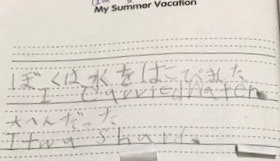 My Summer Vacation
ぼくは水をはこびました
I carried water.
大へんだった
It was hard.